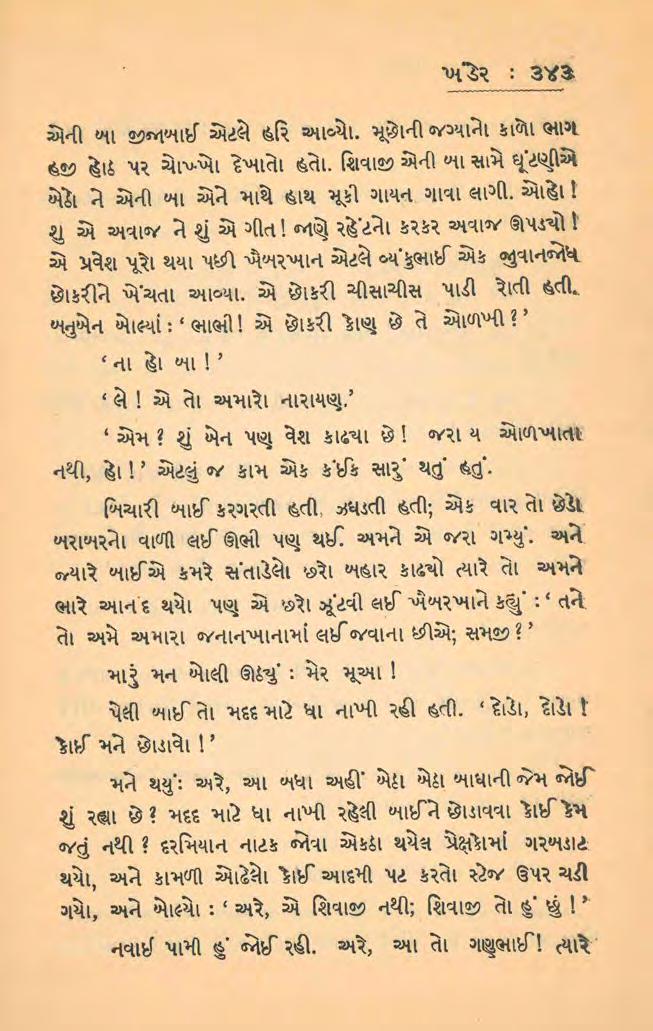 ખંડેર : ૩૪૩
એની બા જીજાબાઈ એટલે હરિ આવ્યો. મૂછોની જગ્યાનો કાળો ભાગ
હજી હોઠ પર ચોખ્ખો દેખાતો હતો. શિવાજી એની બા સામે ઘૂંટણીએ
બેઠો ને એની બા એને માથે હાથ મૂકી ગાયન ગાવા લાગી. ઓહો!
શુ એ અવાજ ને શું એ ગીત! જાણે રહેંટનો કરકર અવાજ ઊપડ્યો!
એ પ્રવેશ પૂરો થયા પછી ખૈબરખાન એટલે વ્યંકુભાઈ એક જુવાનજોધ
છોકરીને ખેંચતા આવ્યા. એ છોકરી ચીસાચીસ પાડી રોતી હતી.
બનુબેન બોલ્યાં : ‘ ભાભી! એ છોકરી કોણ છે તે ઓળખી ? ’
‘ ના હો બા ! ’
‘ લે ! એ તો અમારો નારાયણ.’
‘ એમ ? શું બેન પણ વેશ કાઢ્યા છે! જરા ય ઓળખાતા
નથી, હો ! ’ એટલું જ કામ એક કંઈક સારું થતું હતું.
બિચારી બાઈ કરગરતી હતી, ઝઘડતી હતી; એક વાર તો છેડો
બરાબરનો વાળી લઈ ઊભી પણ થઈ. અમને એ જરા ગમ્યું. અને
જ્યારે બાઈએ કમરે સંતાડેલો છરો બહાર કાઢ્યો ત્યારે તો અમને
ભારે આનંદ થયો પણ એ છરો ઝૂંટવી લઈ ખૈબરખાને કહ્યું : ‘ તને
તો અમે અમારા જનાનખાનામાં લઈ જવાના છીએ; સમજી ? ’
મારું મન બોલી ઊઠ્યું : મેર મૂઆ !
પેલી બાઈ તો મદદ માટે ધા નાખી રહી હતી. ‘ દોડો, દોડો !
કોઈ મને છોડાવો ! ’
મને થયું: અરે, આ બધા અહીં બેઠા બેઠા બાઘાની જેમ જોઈ
શું રહ્યા છે ? મદદ માટે ધા નાખી રહેલી બાઈને છોડાવવા કોઈ કેમ
જતું નથી ? દરમિયાન નાટક જોવા એકઠા થયેલ પ્રેક્ષકોમાં ગરબડાટ
થયો, અને કામળી ઓઢેલો કોઈ આદમી પટ કરતો સ્ટેજ ઉપર ચડી
ગયો, અને બોલ્યો : ‘ અરે, એ શિવાજી નથી; શિવાજી તો હું છું ! ’
નવાઈ પામી હું જોઈ રહી. અરે, આ તો ગણુભાઈ! ત્યારે